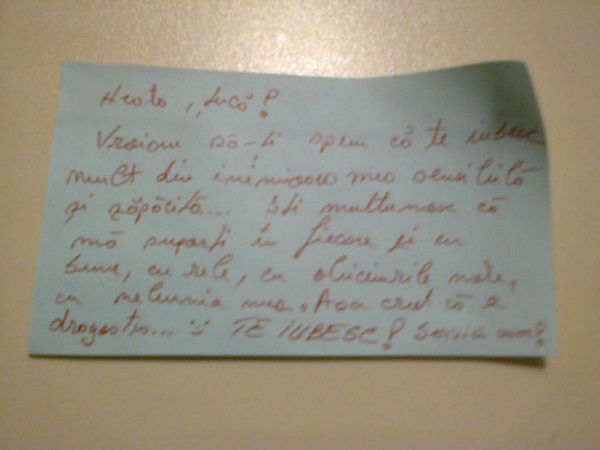 Heato, Lucă!
Vroiam să-ți spun că te iubesc
mult din inimioara mea sensibilă
și zăpăcită... Îți mulțumesc că
mă suporți în fiecare zi cu
bune, cu rele, cu obiceiurile mele,
cu nebunia mea. Asta cred că e
dragostea... :) TE IUBESC!